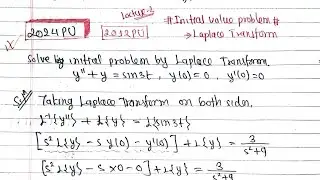 Lecture-3
2024 PU 2012 PU # Initial value problem #
→ Laplace Transform
Solve by initial problem by Laplace Transform.
y'' + y = sin3t , y(0) = 0 , y'(0) = 0
Soln Taking Laplace Transform on both sides,
L{y''} + L{y} = L{sin3t}
[s² L{y} - s y(0) - y'(0)] + L{y} = 3/(s²+9)
[s² L{y} - s×0 - 0] + L{y} = 3/(s²+9)